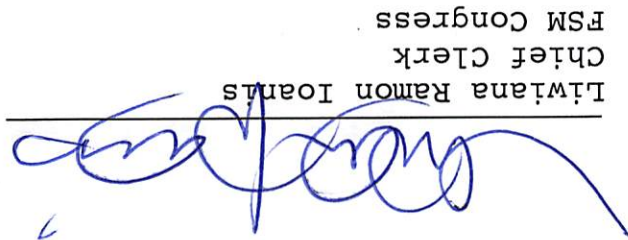 Liwiana Ramon Ioanis
Chief Clerk
FSM Congress